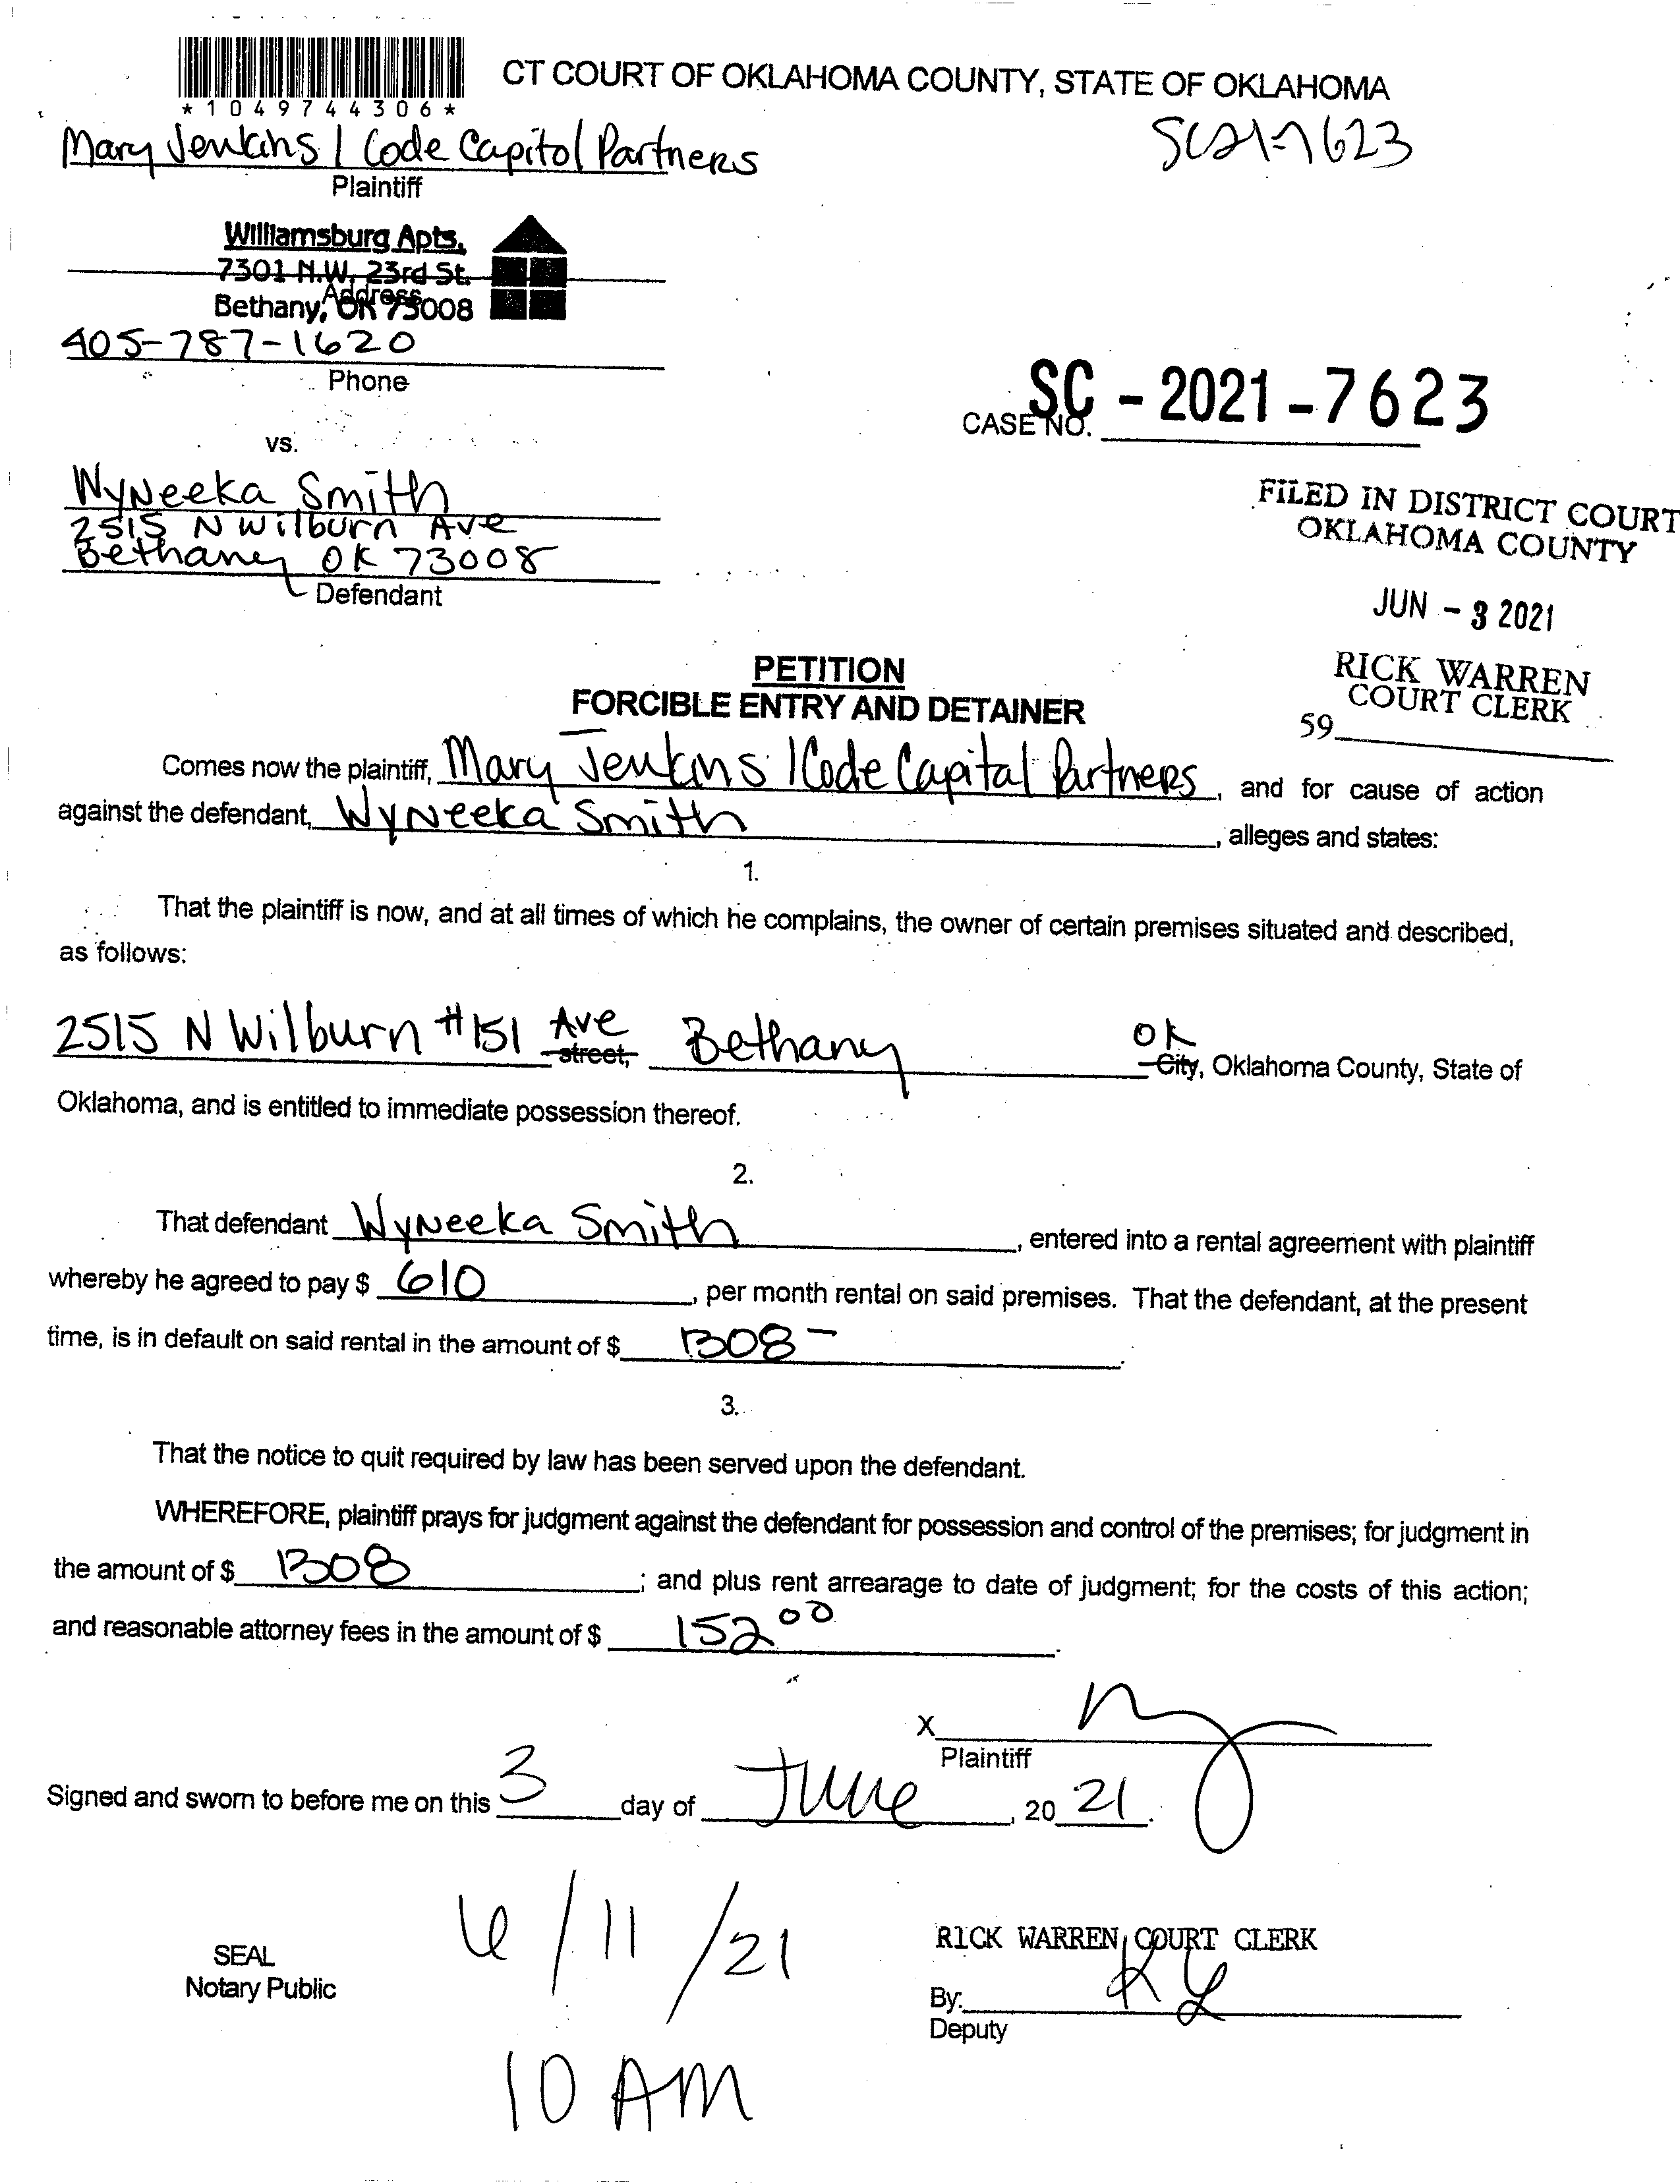 CT COURT OF OKLAHOMA COUNTY, STATE OF OKLAHOMA
*1049744306*
Mary Jenkins / Code Capitol Partners
SC21-7623
Plaintiff
Williamsburg Apts.
7301 N.W. 23rd St.
Address
Bethany, OK 73008
405-787-1620
Phone
SC - 2021 - 7623
CASE NO.
vs.
Wyneeka Smith
2515 N Wilburn Ave
Bethany OK 73008
Defendant
FILED IN DISTRICT COURT
OKLAHOMA COUNTY
JUN - 3 2021
RICK WARREN
COURT CLERK
59
PETITION
FORCIBLE ENTRY AND DETAINER
Comes now the plaintiff, Mary Jenkins / Code Capital Partners, and for cause of action
against the defendant, Wyneeka Smith, alleges and states:
1.
That the plaintiff is now, and at all times of which he complains, the owner of certain premises situated and described,
as follows:
2515 N Wilburn #151 Ave street, Bethany OK City, Oklahoma County, State of
Oklahoma, and is entitled to immediate possession thereof.
2.
That defendant Wyneeka Smith, entered into a rental agreement with plaintiff
whereby he agreed to pay $ 610, per month rental on said premises. That the defendant, at the present
time, is in default on said rental in the amount of $ 1308-.
3.
That the notice to quit required by law has been served upon the defendant.
WHEREFORE, plaintiff prays for judgment against the defendant for possession and control of the premises; for judgment in
the amount of $ 1308; and plus rent arrearage to date of judgment; for the costs of this action;
and reasonable attorney fees in the amount of $ 152 00.
X
Plaintiff
Signed and sworn to before me on this 3 day of June, 20 21.
6/11/21
SEAL
Notary Public
RICK WARREN, COURT CLERK
By: KY
Deputy
10 AM